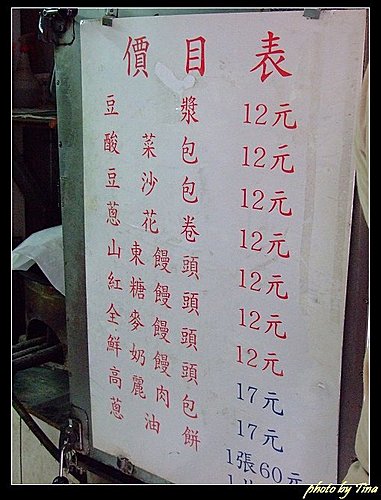 價目表
豆漿 12元
酸菜包 12元
豆沙包 12元
蔥花卷 12元
山東饅頭 12元
紅糖饅頭 12元
全麥饅頭 12元
鮮奶饅頭 17元
高麗肉包 17元
蔥油餅 1張60元
photo by Tina